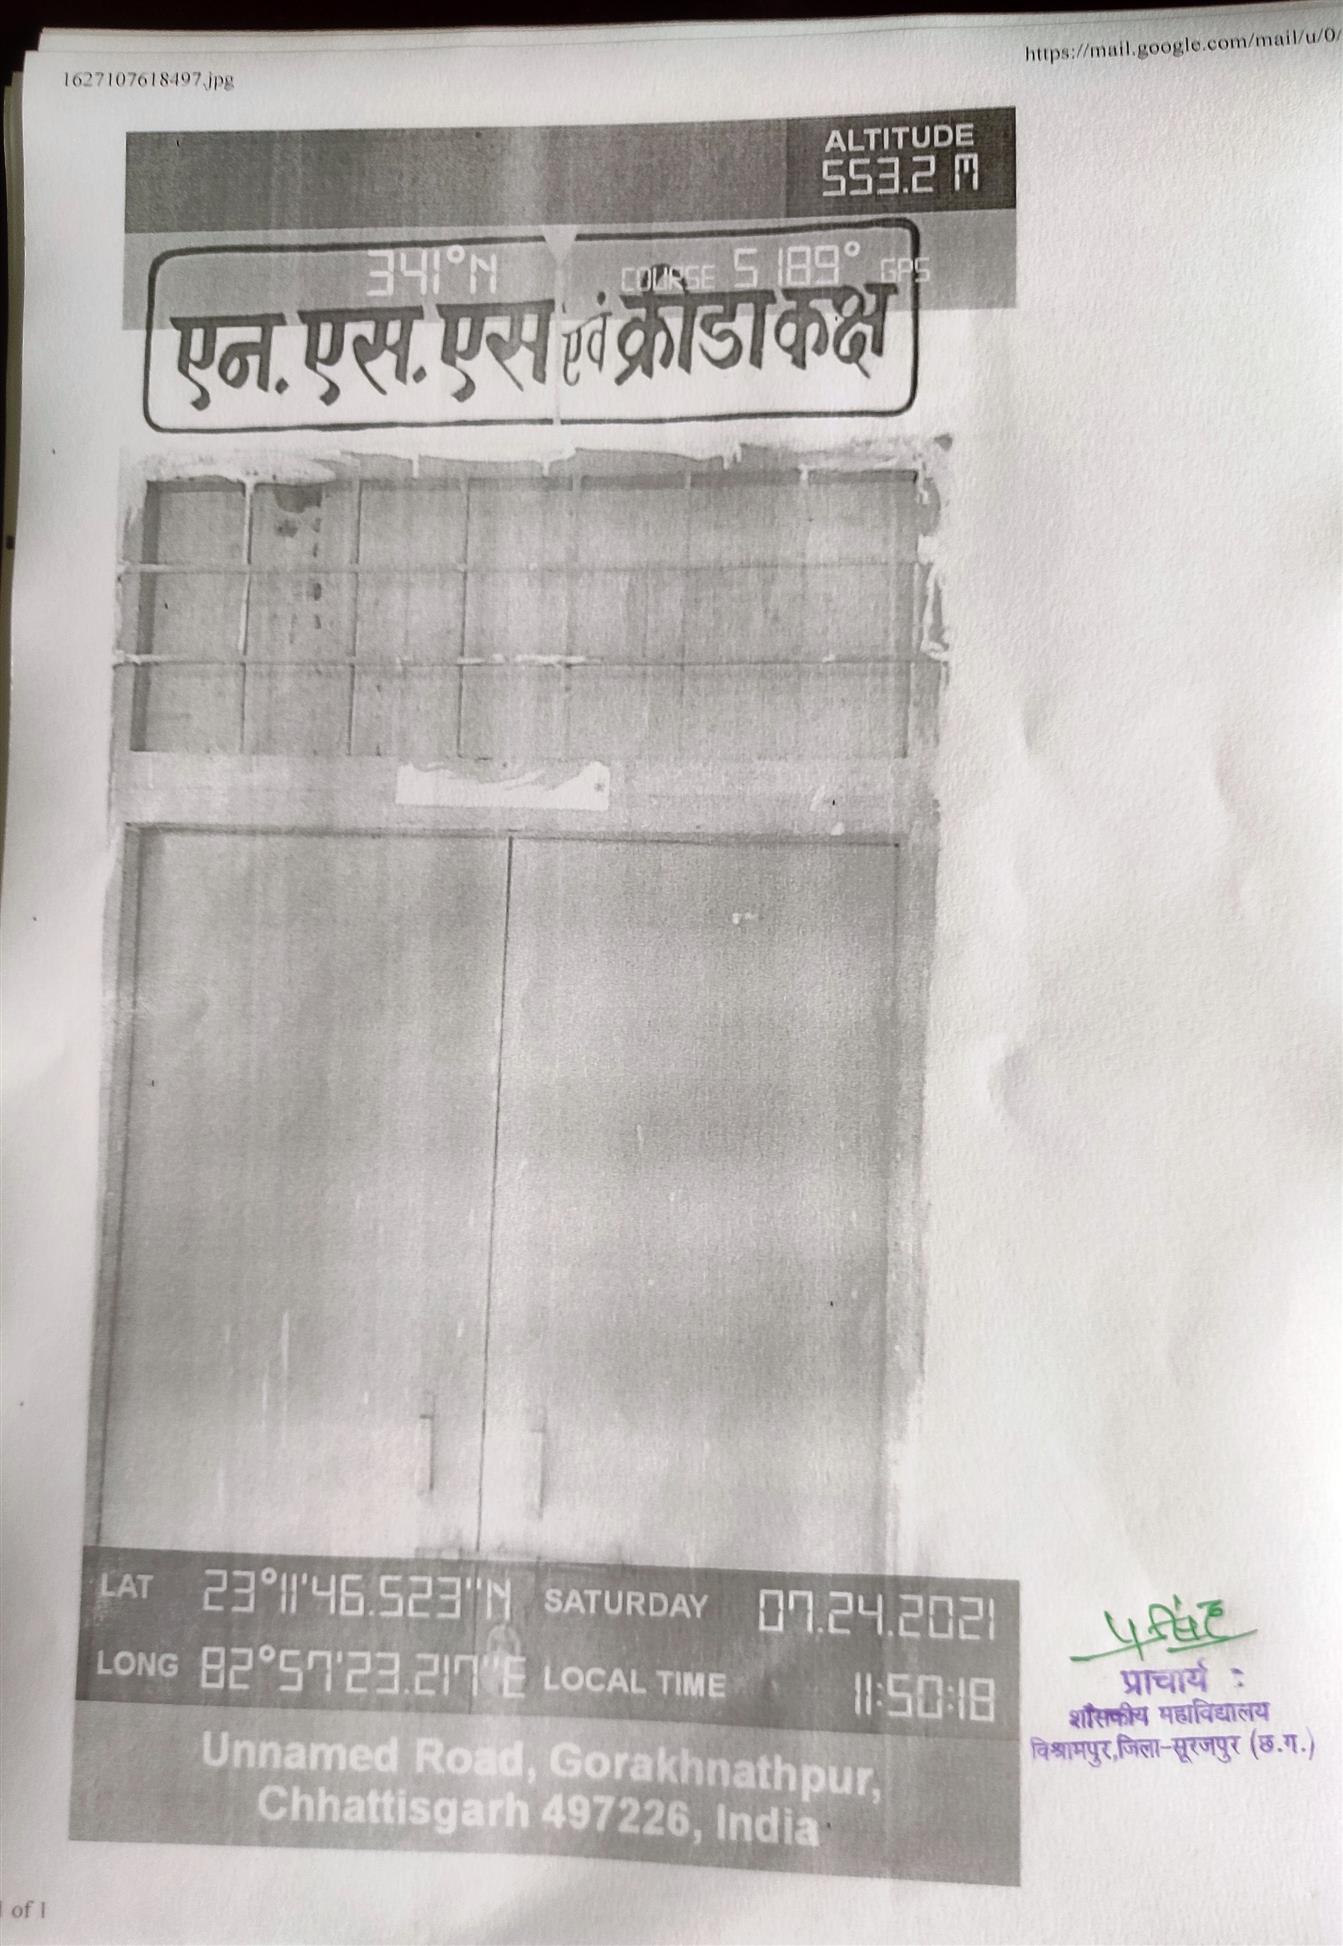 1627107618497.jpg
https://mail.google.com/mail/u/0/
ALTITUDE
553.2 M
341°N COURSE S 189° GPS
एन. एस. एस एवं क्रीडा कक्ष
LAT 23°11'46.523"N SATURDAY 07.24.2021
LONG 82°57'23.217"E LOCAL TIME 11:50:18
Unnamed Road, Gorakhnathpur,
Chhattisgarh 497226, India
प्राचार्य :
शासकीय महाविद्यालय
विश्रामपुर,जिला-सूरजपुर (छ.ग.)
of 1